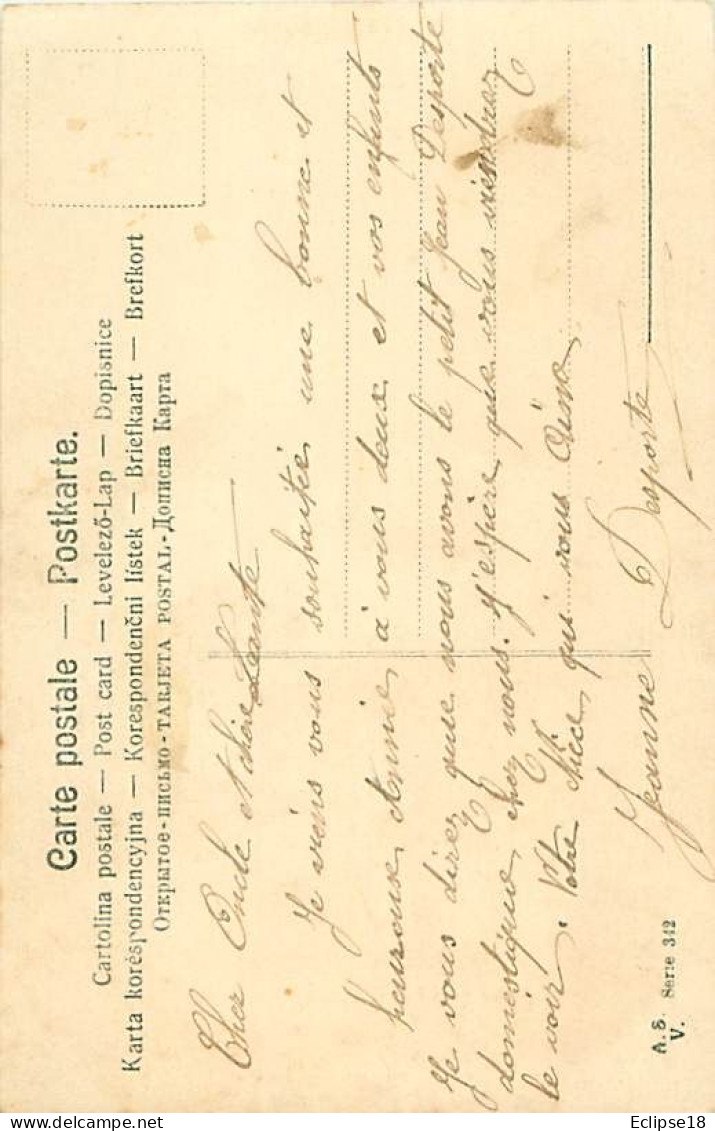 Carte postale — Postkarte.
Cartolina postale — Post card — Levelező-Lap — Dopisnice
Karta korespondencyjna — Korespondenční lístek — Briefkaart — Brefkort
Открытое-письмо-TARJETA POSTAL-Дописна Карта
Cher Oncle et chère Tante
Je viens vous souhaiter une bonne et
heureuse Année à vous deux et vos enfants
Je vous direz que nous avons le petit Jean Desporte
domestique chez nous. J'espère que vous viendrez
le voir. Votre Nièce qui vous aime
Jeanne Desporte
A. S. V. Serie 342
Eclipse18